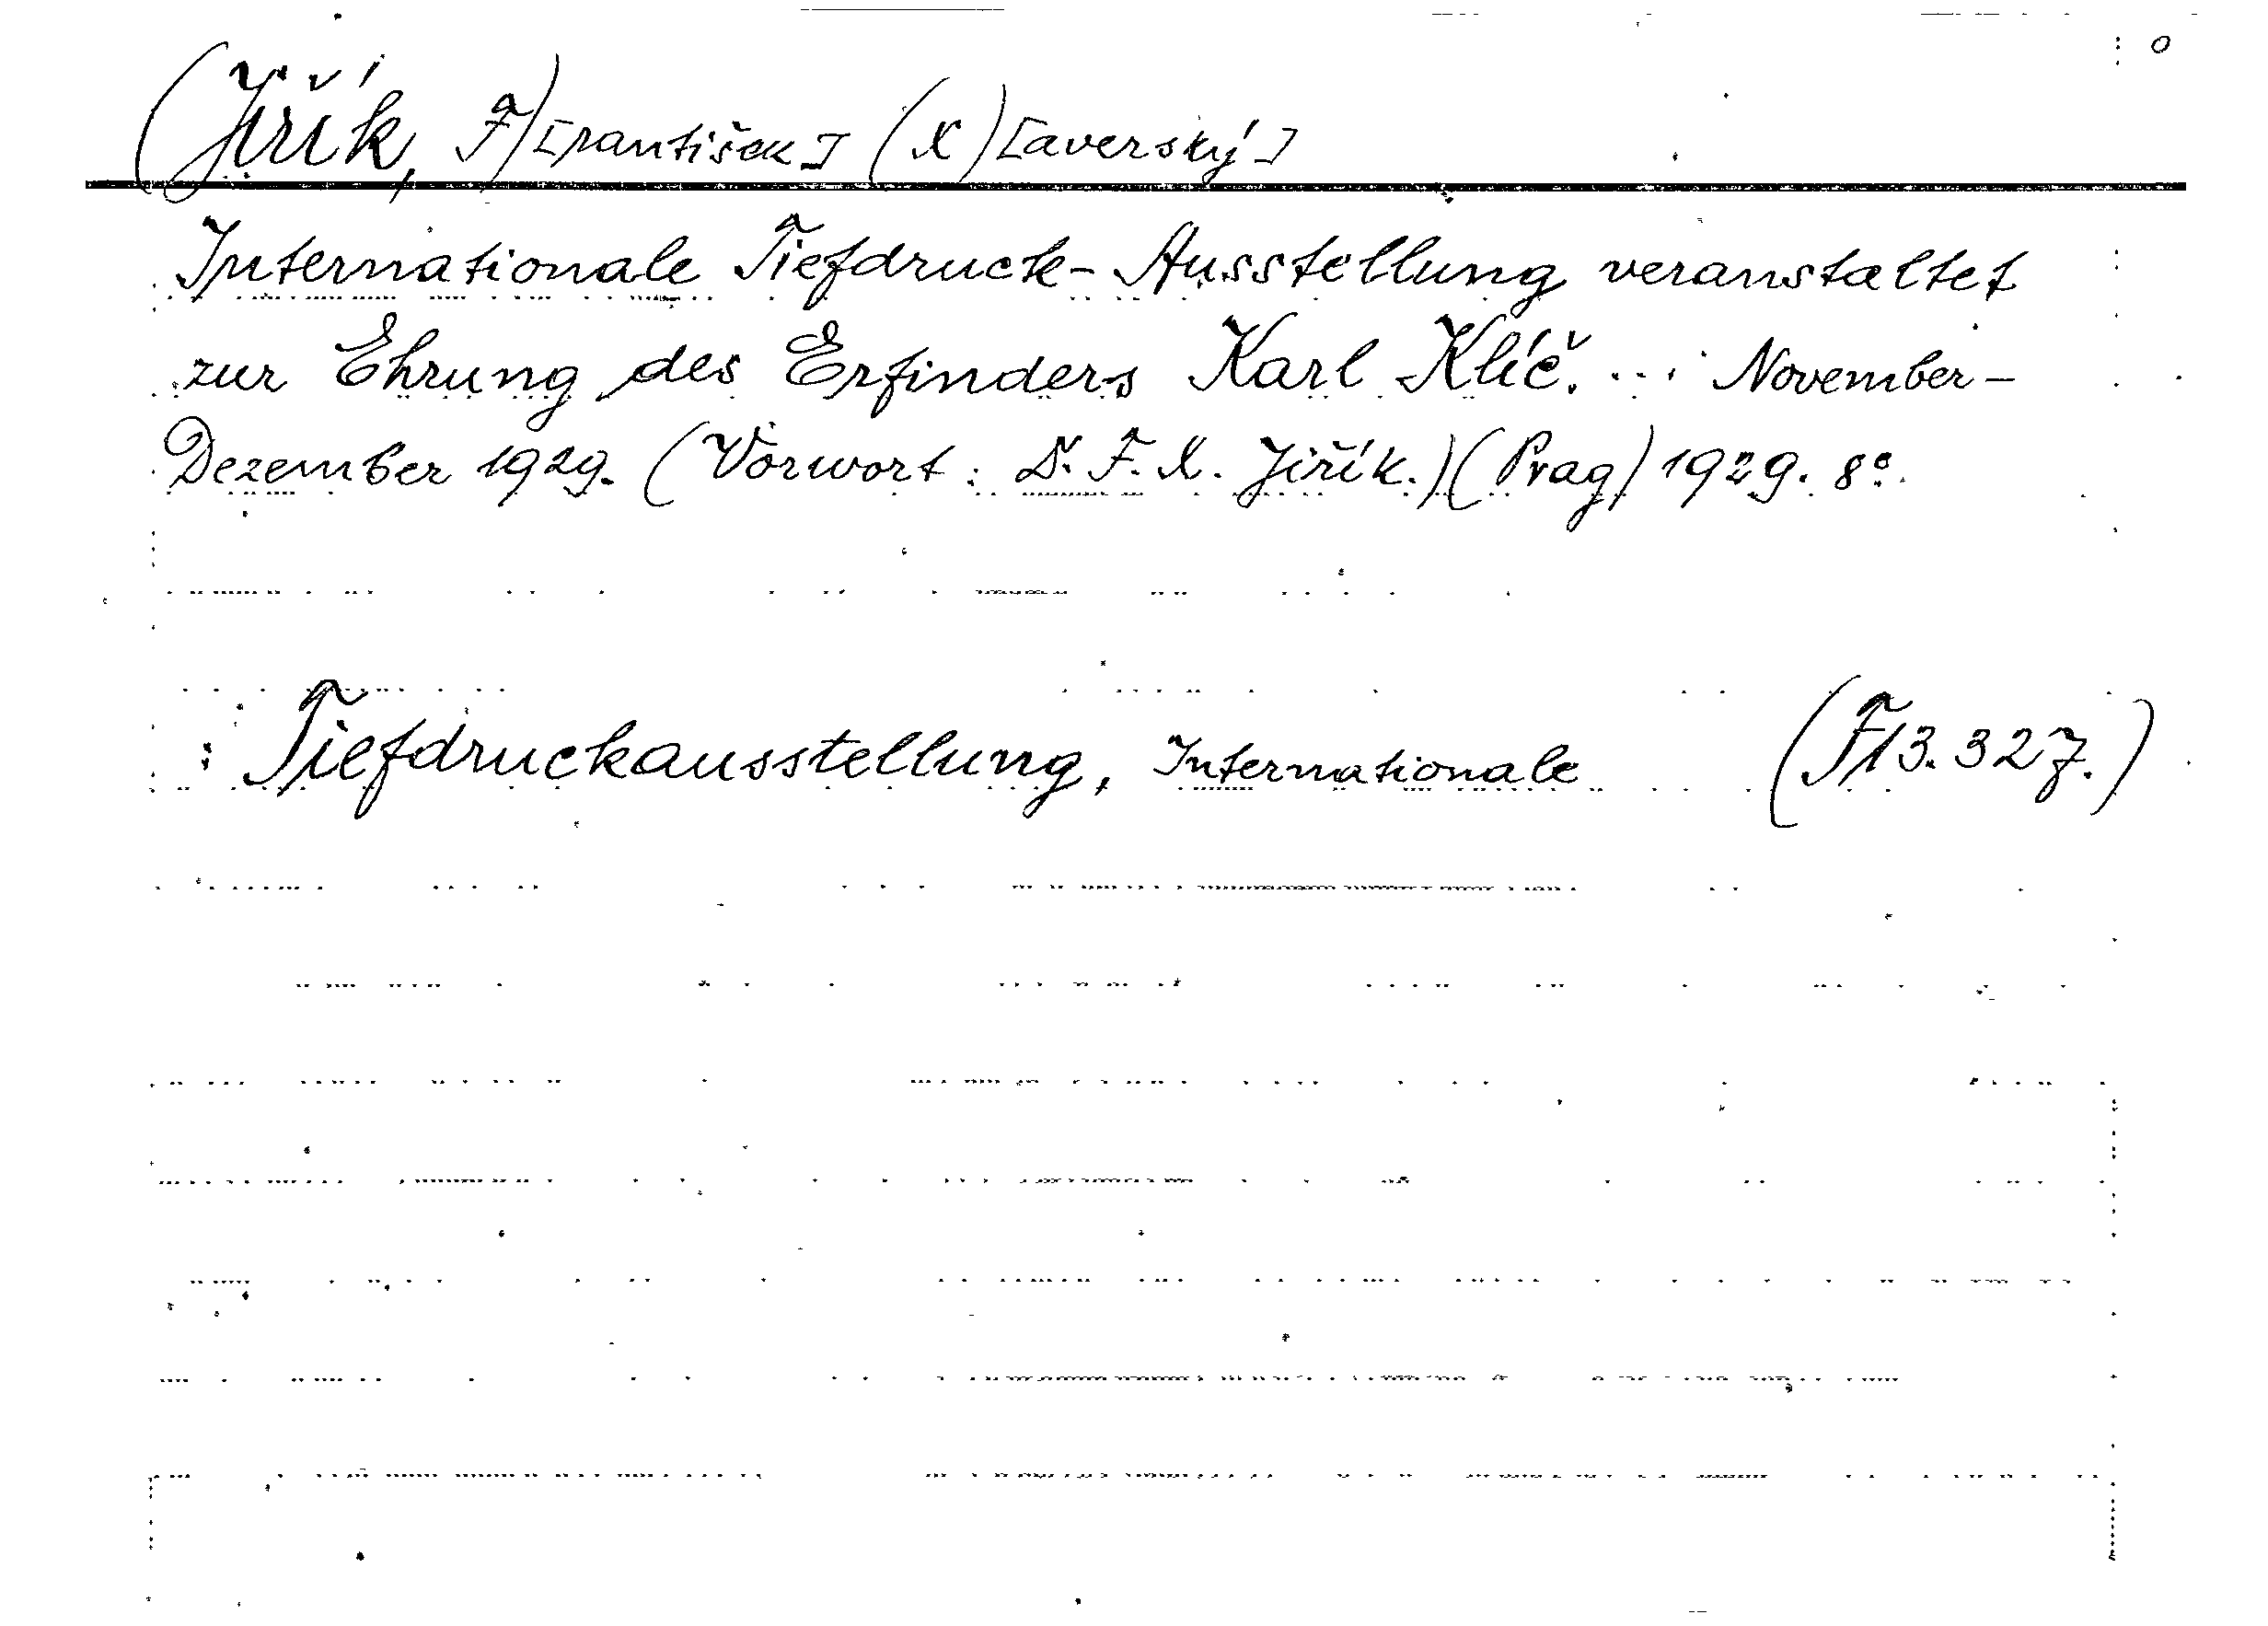 (Jiřík, F)[rantišek] (X)[averský]
Internationale Tiefdruck-Ausstellung veranstaltet
zur Ehrung des Erfinders Karl Klíč. ... November-
Dezember 1929. (Vorwort: Dr. F. X. Jiřík.) (Prag) 1929. 8°.
: Tiefdruckausstellung, Internationale (F13.327.)